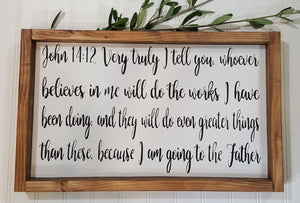 John 14:12 Very truly I tell you, whoever
believes in me will do the works I have
been doing, and they will do even greater things
than these, because I am going to the Father